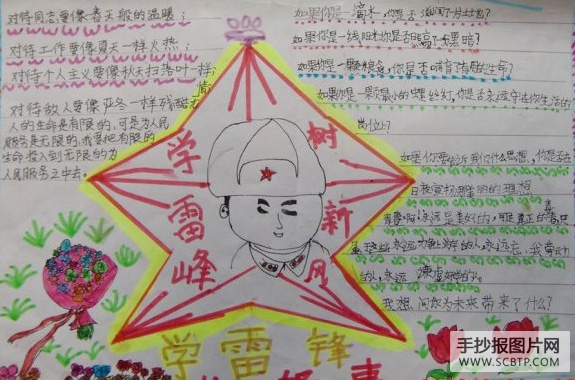 对待同志要像春天般的温暖；
对待工作要像夏天一样火热；
对待个人主义要像秋天扫落叶一样；
对待敌人要像严冬一样残酷无
情
人的生命是有限的，可是为人民
服务是无限的，我要把有限的
生命投入到无限的为
人民服务之中去。
学雷峰
树新风
如果你是一滴水，你是否滋润了一方土地？
如果你是一线阳光你是否照亮了一片黑暗？
如果你是一颗粮食，你是否哺育有用的生命？
如果你是一颗最小的螺丝钉，你是否永远守在你生活的
岗位上？
如果你要告诉我们什么思想，你是否在
日夜宣扬那美丽的理想
青春啊永远是美好的，可是真正的青春，只
属于这些永远力争上游的人，永远忘我劳动
的人，永远谦虚的人。
我想，问你为未来带来了什么？
学雷锋
手抄报图片网
WWW.SCBTP.COM